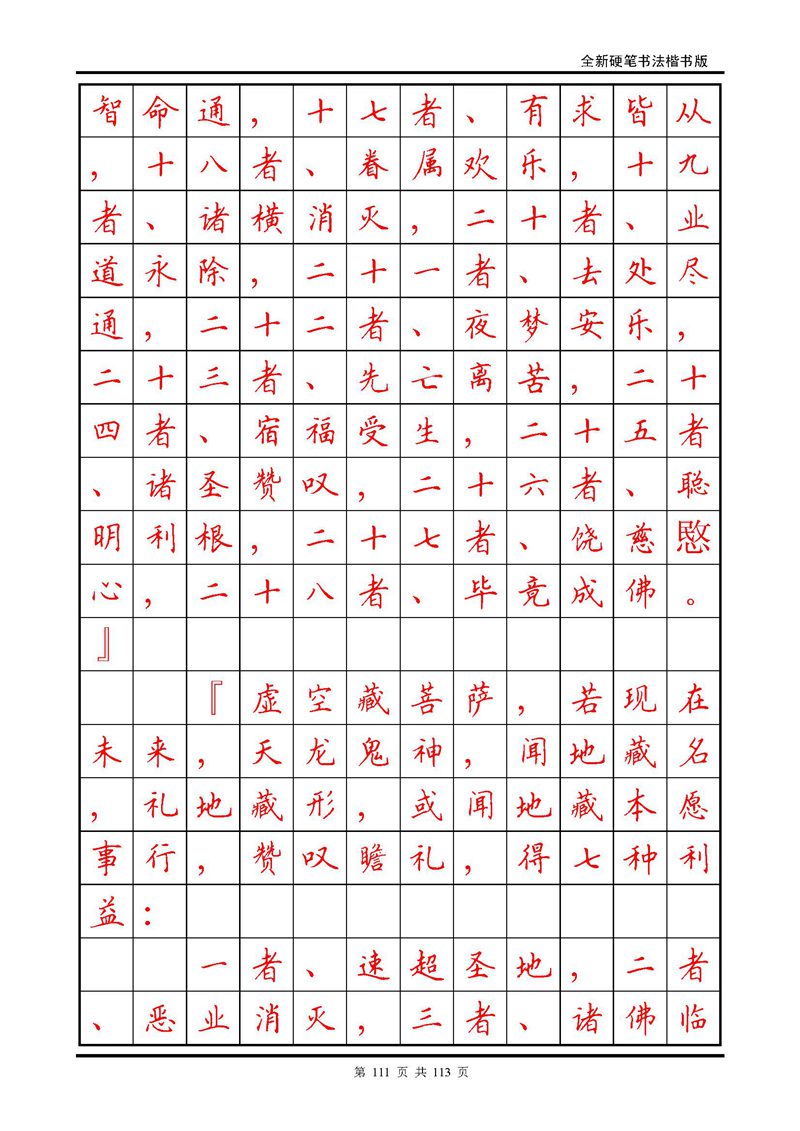 全新硬笔书法楷书版
智命通，十七者、有求皆从
，十八者、眷属欢乐，十九
者、诸横消灭，二十者、业
道永除，二十一者、去处尽
通，二十二者、夜梦安乐，
二十三者、先亡离苦，二十
四者、宿福受生，二十五者
、诸圣赞叹，二十六者、聪
明利根，二十七者、饶慈愍
心，二十八者、毕竟成佛。
』
『虚空藏菩萨，若现在
未来，天龙鬼神，闻地藏名
，礼地藏形，或闻地藏本愿
事行，赞叹瞻礼，得七种利
益：
一者、速超圣地，二者
、恶业消灭，三者、诸佛临
第 111 页 共 113 页